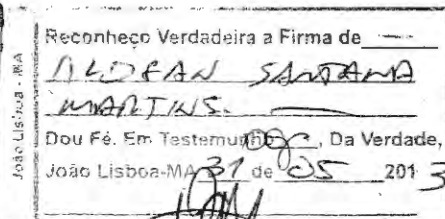 João Lisboa - MA
Reconheço Verdadeira a Firma de
ALDEAN SANTANA
MARTINS.
Dou Fé. Em Testemunho, Da Verdade,
João Lisboa-MA 31 de 05 2013